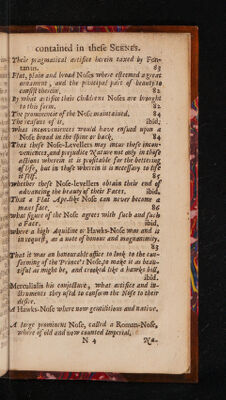 contained in these SCENES.
Their pragmatical artifice herein taxed by Fon-
tanus. 82
Flat, plain and broad Noses where esteemed a great
ornament, and the principal part of beauty to
consist therein, 82
By what artifice their Childrens Noses are brought
to this form. 82
The prominencie of the Nose maintained. 84
The reasons of it, ibid,
What inconveniences would have ensued upon a
Nose broad in the spine or back, 84
That these Nose-Levellers may incur these incon-
veniences, and prejudice Nature not only in those
actions wherein it is profitable for the bettering
of life, but in those wherein it is necessary to life
it self. 85
Whether these Nose-levellers obtain their end of
advancing the beauty of their Faces, ibid,
That a Flat Ape-like Nose can never become a
mans face. 86
What figure of the Nose agrees with such and such
a Face. ibid,
Where a high Aquiline or Hawks-Nose was and is
in request, as a note of honour and magnanimity.
87
That it was an honourable office to look to the con-
forming of the Prince's Nose, to make it as beau-
tiful as might be, and crooked like a hawks bill,
ibid.
Mercurialis his conjecture, what artifice and in-
struments they used to conform the Nose to their
desire.
A Hawks-Nose where now gentilitious and native,
A large prominent Nose, called a Roman-Nose,
where of old and now counted Imperial,
N 4 Na-